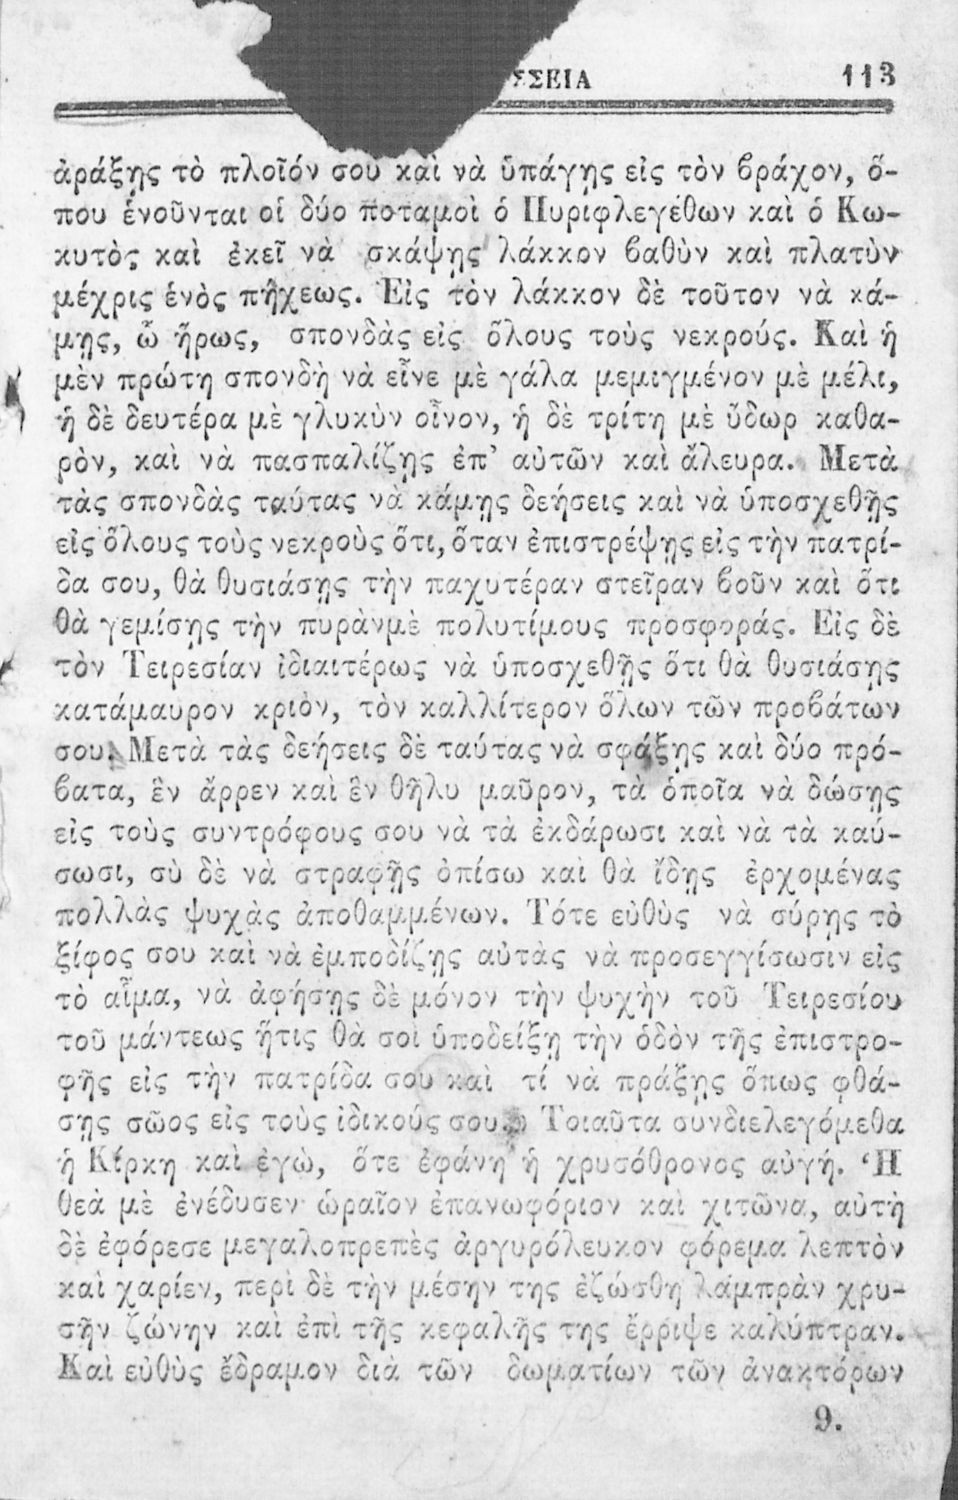 ΣΣΕΙΑ 113
ἀράξῃς τὸ πλοῖόν σου καὶ νὰ ὑπάγῃς εἰς τὸν βράχον, ὅ-
που ἑνοῦνται οἱ δύο ποταμοὶ ὁ Πυριφλεγέθων καὶ ὁ Κω-
κυτὸς καὶ ἐκεῖ νὰ σκάψῃς λάκκον βαθὺν καὶ πλατὺν
μέχρις ἑνὸς πήχεως. Εἰς τὸν λάκκον δὲ τοῦτον νὰ κά-
μῃς, ὦ ἥρως, σπονδὰς εἰς ὅλους τοὺς νεκρούς. Καὶ ἡ
μὲν πρώτη σπονδὴ νὰ εἶνε μὲ γάλα μεμιγμένον μὲ μέλι,
ἡ δὲ δευτέρα μὲ γλυκὺν οἶνον, ἡ δὲ τρίτη μὲ ὕδωρ καθα-
ρὸν, καὶ νὰ πασπαλίζῃς ἐπ’ αὐτῶν καὶ ἄλευρα. Μετὰ
τὰς σπονδὰς ταύτας νὰ κάμῃς δεήσεις καὶ νὰ ὑποσχεθῇς
εἰς ὅλους τοὺς νεκροὺς ὅτι, ὅταν ἐπιστρέψῃς εἰς τὴν πατρί-
δα σου, θὰ θυσιάσῃς τὴν παχυτέραν στεῖραν βοῦν καὶ ὅτι
θὰ γεμίσῃς τὴν πυρὰνμὲ πολυτίμους προσφοράς. Εἰς δὲ
τὸν Τειρεσίαν ἰδιαιτέρως νὰ ὑποσχεθῇς ὅτι θὰ θυσιάσῃς
κατάμαυρον κριὸν, τὸν καλλίτερον ὅλων τῶν προβάτων
σου. Μετὰ τὰς δεήσεις δὲ ταύτας νὰ σφάξῃς καὶ δύο πρό-
βατα, ἓν ἄρρεν καὶ ἓν θῆλυ μαῦρον, τὰ ὁποῖα νὰ δώσῃς
εἰς τοὺς συντρόφους σου νὰ τὰ ἐκδάρωσι καὶ νὰ τὰ καύ-
σωσι, σὺ δὲ νὰ στραφῇς ὀπίσω καὶ θὰ ἴδῃς ἐρχομένας
πολλὰς ψυχὰς ἀποθαμμένων. Τότε εὐθὺς νὰ σύρῃς τὸ
ξίφος σου καὶ νὰ ἐμποδίζῃς αὐτὰς νὰ προσεγγίσωσιν εἰς
τὸ αἷμα, νὰ ἀφήσῃς δὲ μόνον τὴν ψυχὴν τοῦ Τειρεσίου
τοῦ μάντεως ἥτις θὰ σοὶ ὑποδείξῃ τὴν ὁδὸν τῆς ἐπιστρο-
φῆς εἰς τὴν πατρίδα σου καὶ τί νὰ πράξῃς ὅπως φθά-
σῃς σῶος εἰς τοὺς ἰδικούς σου.» Τοιαῦτα συνδιελεγόμεθα
ἡ Κίρκη καὶ ἐγὼ, ὅτε ἐφάνη ἡ χρυσόθρονος αὐγή. Ἡ
θεὰ μὲ ἐνέδυσεν ὡραῖον ἐπανωφόριον καὶ χιτῶνα, αὐτὴ
δὲ ἐφόρεσε μεγαλοπρεπὲς ἀργυρόλευκον φόρεμα λεπτὸν
καὶ χαρίεν, περὶ δὲ τὴν μέσην της ἐζώσθη λαμπρὰν χρυ-
σῆν ζώνην καὶ ἐπὶ τῆς κεφαλῆς της ἔρριψε καλύπτραν.
Καὶ εὐθὺς ἔδραμον διὰ τῶν δωματίων τῶν ἀνακτόρων
9.